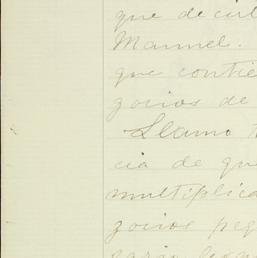 que de cul
Manuel.
que contie
gocios de
Llamo
cia de que
multiplica
gocios peq